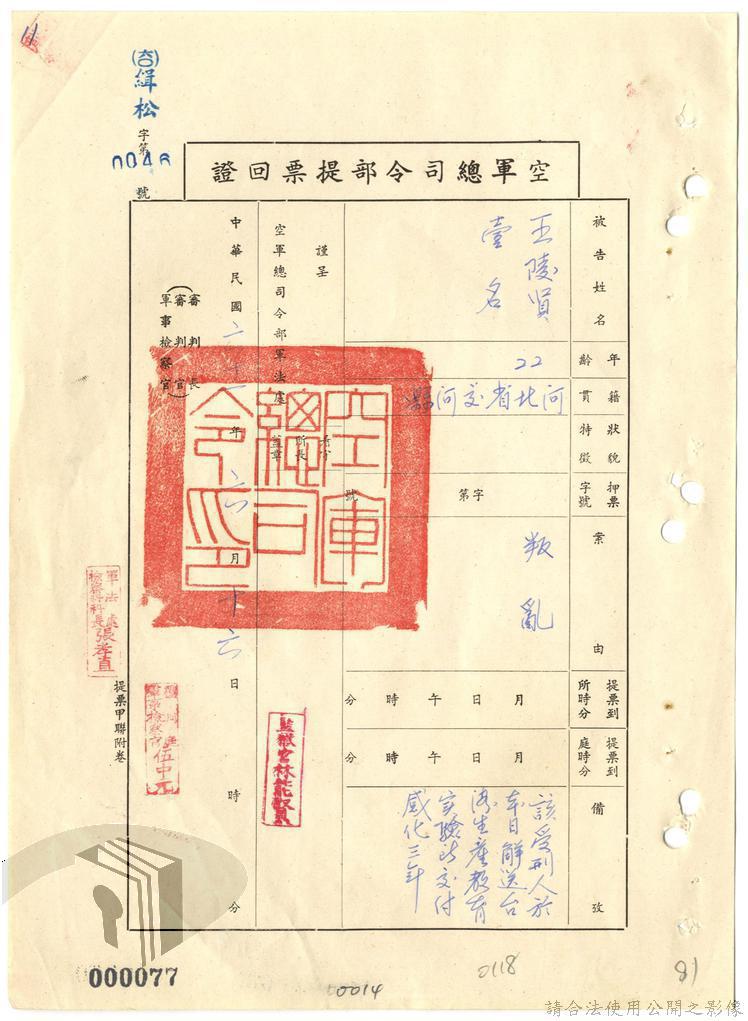 緝松
字第
0046
號
空軍總司令部提票回證
被告姓名
王陵賢
壹名
年齡
22
籍貫
河北省交河縣
狀貌特徵
押票字號
字第
號
案由
叛亂
提票到所時分
月日午時分
提票到庭時分
月日午時分
備攷
該受刑人於
本日解送台
灣生產教育
實驗所交付
感化三年
謹呈
空軍總司令部軍法處
所長
蓋章
監獄官林能毅
中華民國六十一年六月十六日時分
審判長
(審判官)
軍事檢察官
空軍
總司
令印
軍法處
張孝直
軍事檢察官伍中
提票甲聯附卷
000077
0014
0118
81
請合法使用公開之影像